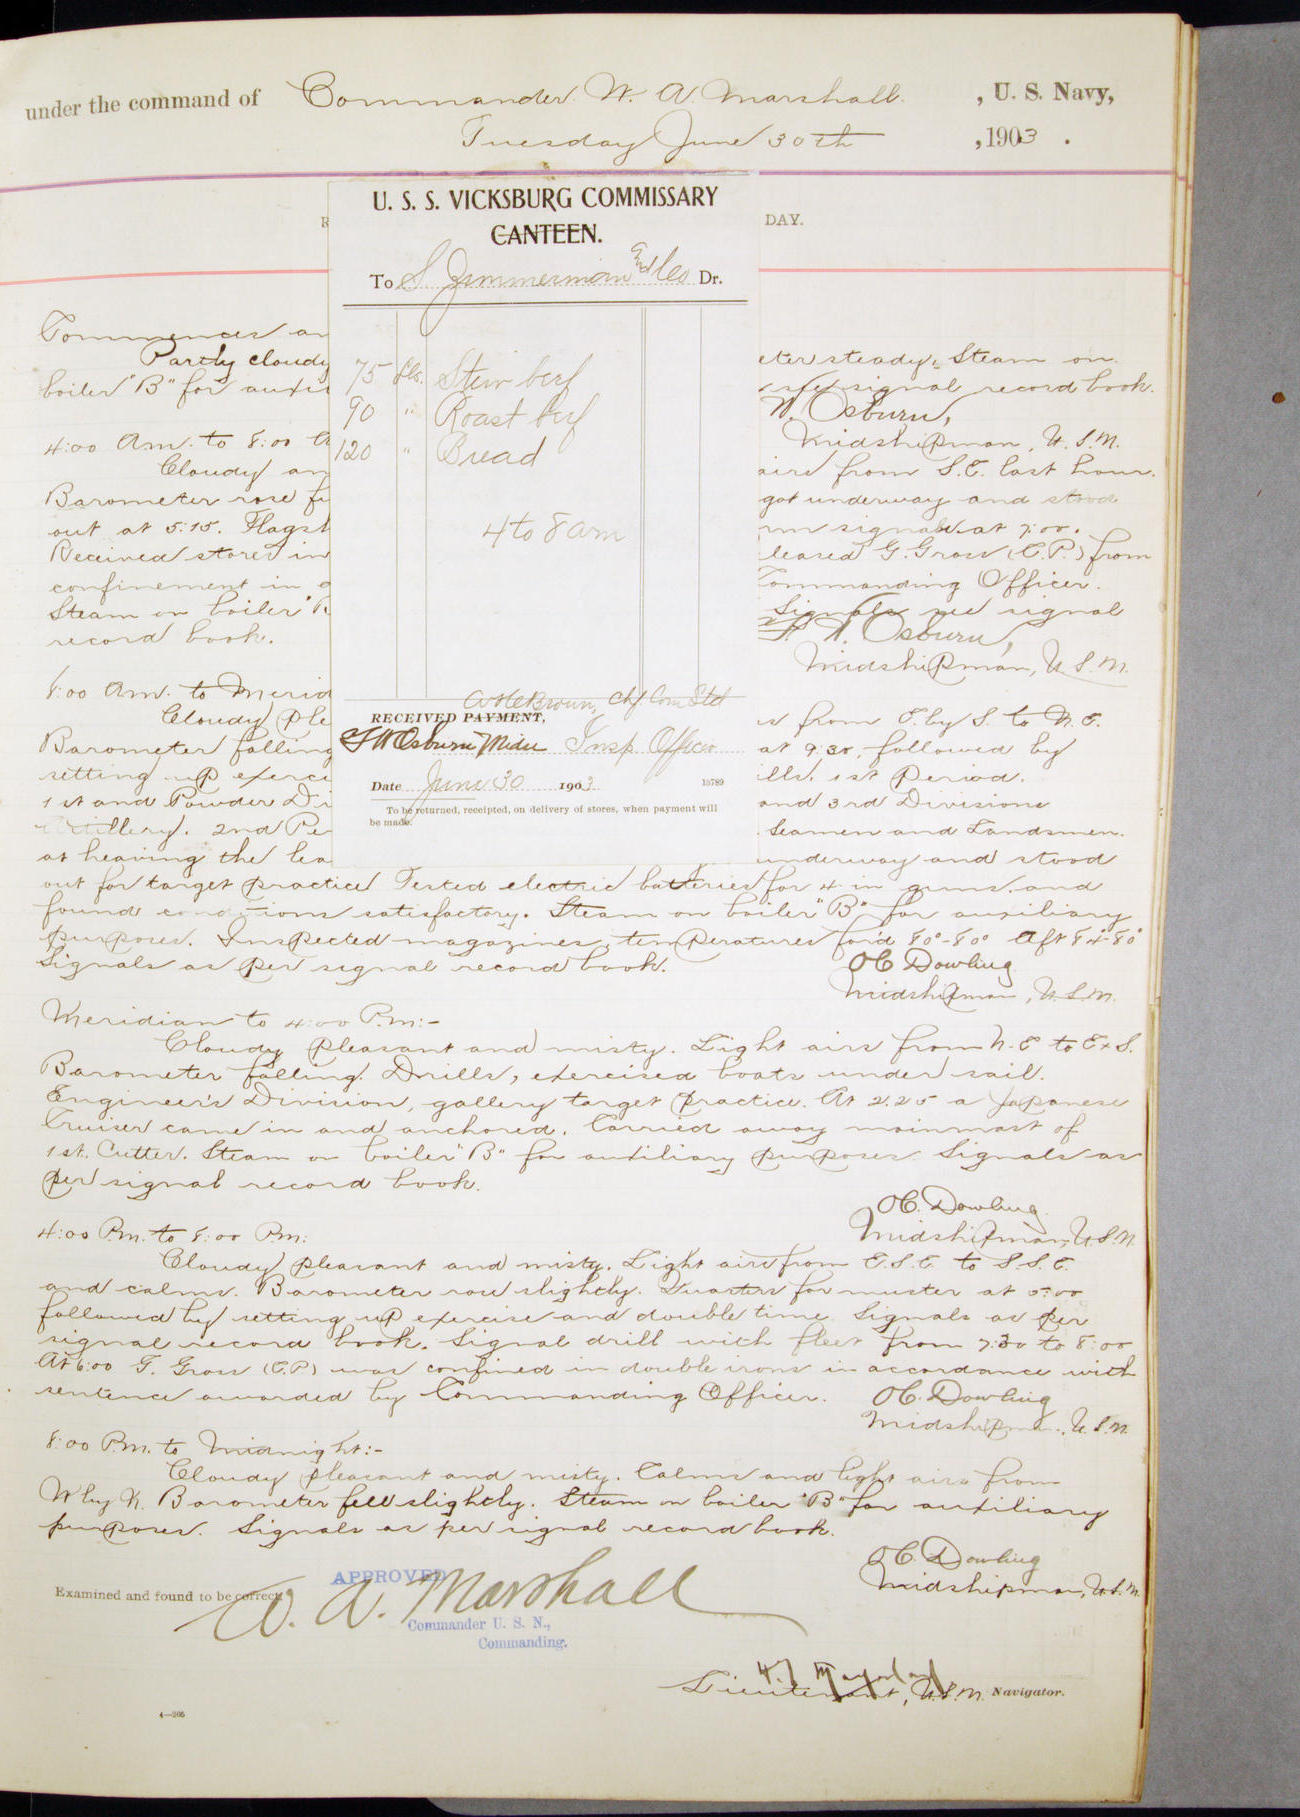 under the command of Commander W. A. Marshall , U. S. Navy,
Tuesday June 30th , 1903 .
DAY.
U. S. S. VICKSBURG COMMISSARY
CANTEEN.
To S Zimmerman and Co Dr.
75 lbs. Stew beef
90 " Roast beef
120 " Bread
4 to 8 am
Brown, Chf Com Std
RECEIVED PAYMENT,
F W Osburn Midn Insp. Officer
Date June 30 1903
15789
To be returned, receipted, on delivery of stores, when payment will
be made.
Commences an
Partly cloudy eter steady. Steam on
boiler "B" for auxi signal record book.
W. Osburn,
Midshipman, U.S.N.
4:00 A.m. to 8:00 A
Cloudy an airs from S.E. last hour.
Barometer rose f got underway and stood
out at 5:15. Flagsh signal at 7:00.
Received stores in leased G. Gross (C.P.) from
confinement in Commanding Officer.
Steam on boiler "B Signals see signal
record book. F. W. Osburn,
Midshipman, U.S.N.
8:00 Am. to Merid
Cloudy ple s from E. by S. to N.E.
Barometer falling at 9:30, followed by
setting up exerci ills. 1st Period.
1st and Powder Di and 3rd Divisions
Artillery. 2nd Pe Seamen and Landsmen.
at heaving the lea underway and stood
out for target practice Tested electric batteries for 4 in guns. and
found conditions satisfactory. Steam on boiler "B" for auxiliary
purposes. Inspected magazines, temperatures for'd 80°-80° Aft 84-80°
Signals as per signal record book. O C Dowling
Midshipman, U.S.N.
Meridian to 4:00 P.m:-
Cloudy pleasant and misty. Light airs from N.E to ExS.
Barometer falling. Drills, exercised boats under sail.
Engineer's Division, gallery target practice. At 2.25 a Japanese
Cruiser came in and anchored. Carried away mainmast of
1st. Cutter. Steam on boiler "B" for auxiliary purposes Signals as
per signal record book.
O C. Dowling
Midshipman, U.S.N.
4:00 P.m. to 8:00 P.m:
Cloudy pleasant and misty. Light airs from E.S.E. to S.S.E.
and calms. Barometer rose slightly. Quarters for muster at 5:00
followed by setting up exercise and double time Signals as per
signal record book. Signal drill with fleet from 7:30 to 8:00
At 6:00 G. Gross (C.P.) was confined in double irons in accordance with
sentence awarded by Commanding Officer. O C. Dowling
Midshipman, U.S.N.
8:00 P.m. to Midnight:-
Cloudy pleasant and misty. Calms and light airs from
W by N. Barometer fell slightly. Steam on boiler "B" for auxiliary
purposes. Signals as per signal record book.
O C. Dowling
Midshipman, U.S.N.
APPROVED
Examined and found to be correct.
W. A. Marshall
Commander U. S. N.,
Commanding.
Lieutenant, U.S.N. Navigator.
4—205